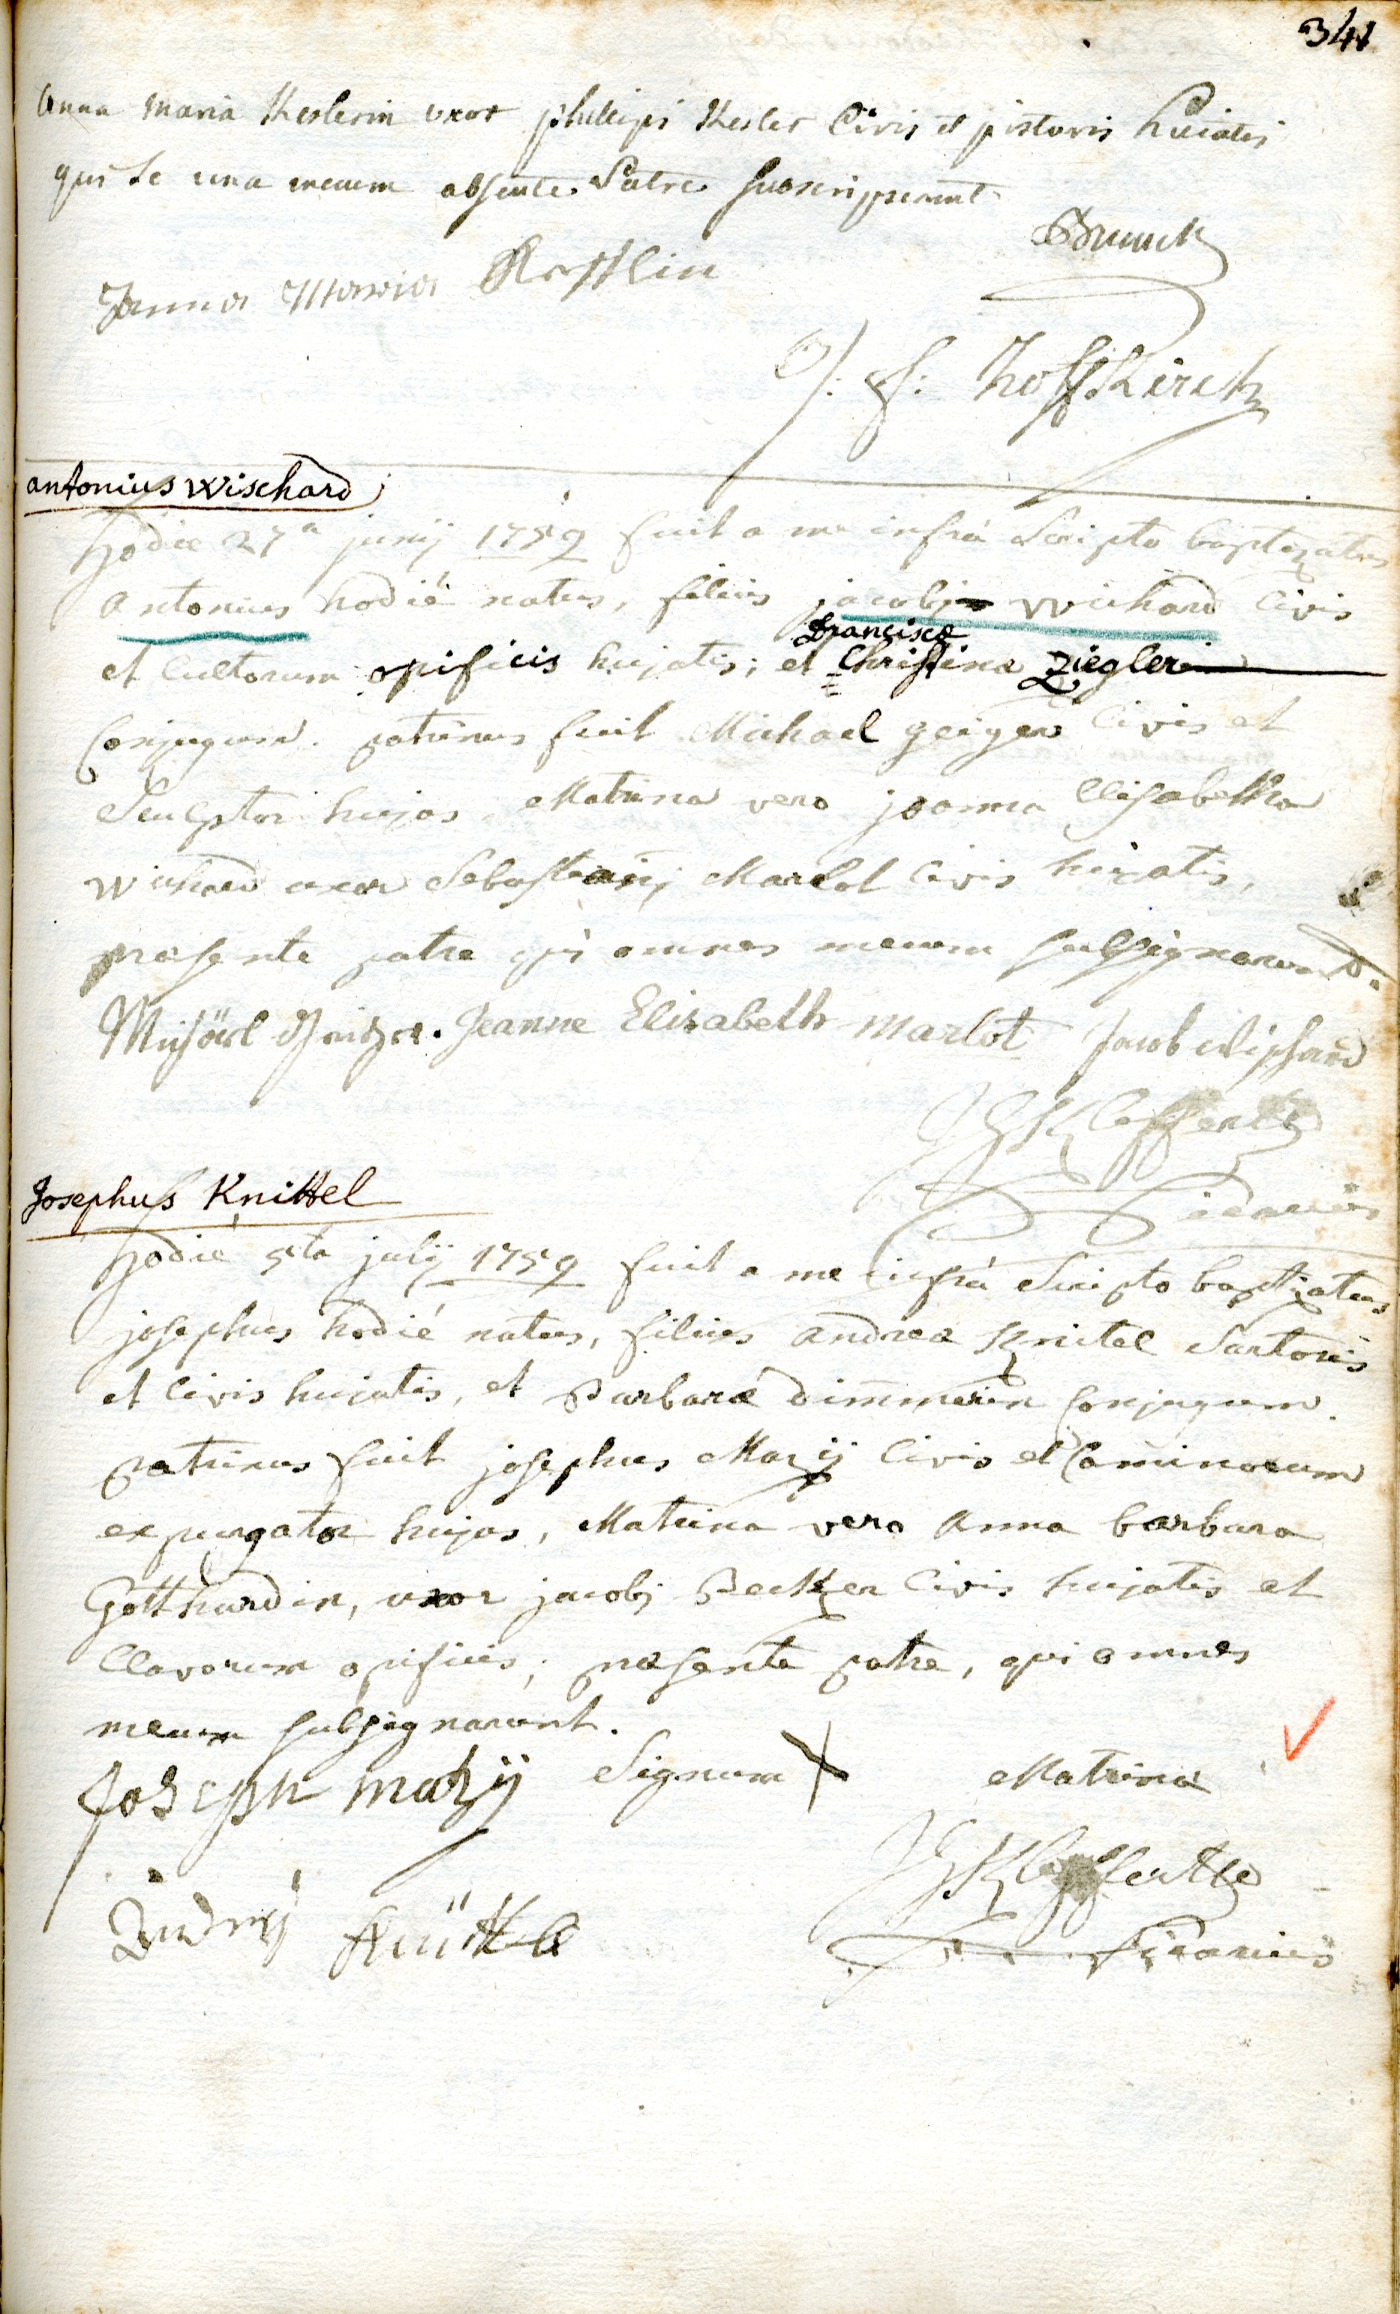 341
Anna Maria Keslerin uxor phillipi Kesler Civis et pistoris huiatis
qui se una mecum absente Patre subscripserunt
Brunck
Anna Maria Kesslin
f: Hoffkirch
antonius Wischard
hodie 27a junij 1759 fuit a me infrà Scripto baptizatus
antonius hodiè natus, filius jacobj wichard Civis
Francisca
et Cultorum opificis hujatis; et Christina Ziegler
Conjugum. patrinus fuit Michael geiger Civis et
Sculptor hujas, Matrina vero joanna Elisabetha
wichard uxor Sebastianj Marlot Civis hujatis,
præsente patre qui omnes mecum subsignarunt.
Michael Geiger. Jeanne Elisabeth marlot Jacob wischard
JG Kleffert
Vicarius
Josephus Knittel
hodie 5ta julij 1759 fuit a me infrà Scripto baptizatus
josephus hodiè natus, filius andreæ Knitel Sartoris
et Civis hujatis, et Barbaræ dimmerin Conjugum.
patrinus fuit josephus Mazij Civis et Caminorum
expurgator hujas, Matrina vero anna barbara
Gotthardin, uxor jacobj Becker Civis hujatis et
Clavorum opificis; præsente patre, qui omnes
mecum subsignarunt.
Joseph mazij Signum X Matrinæ
JG Kleffert
Andrej Knittel
Vicarius